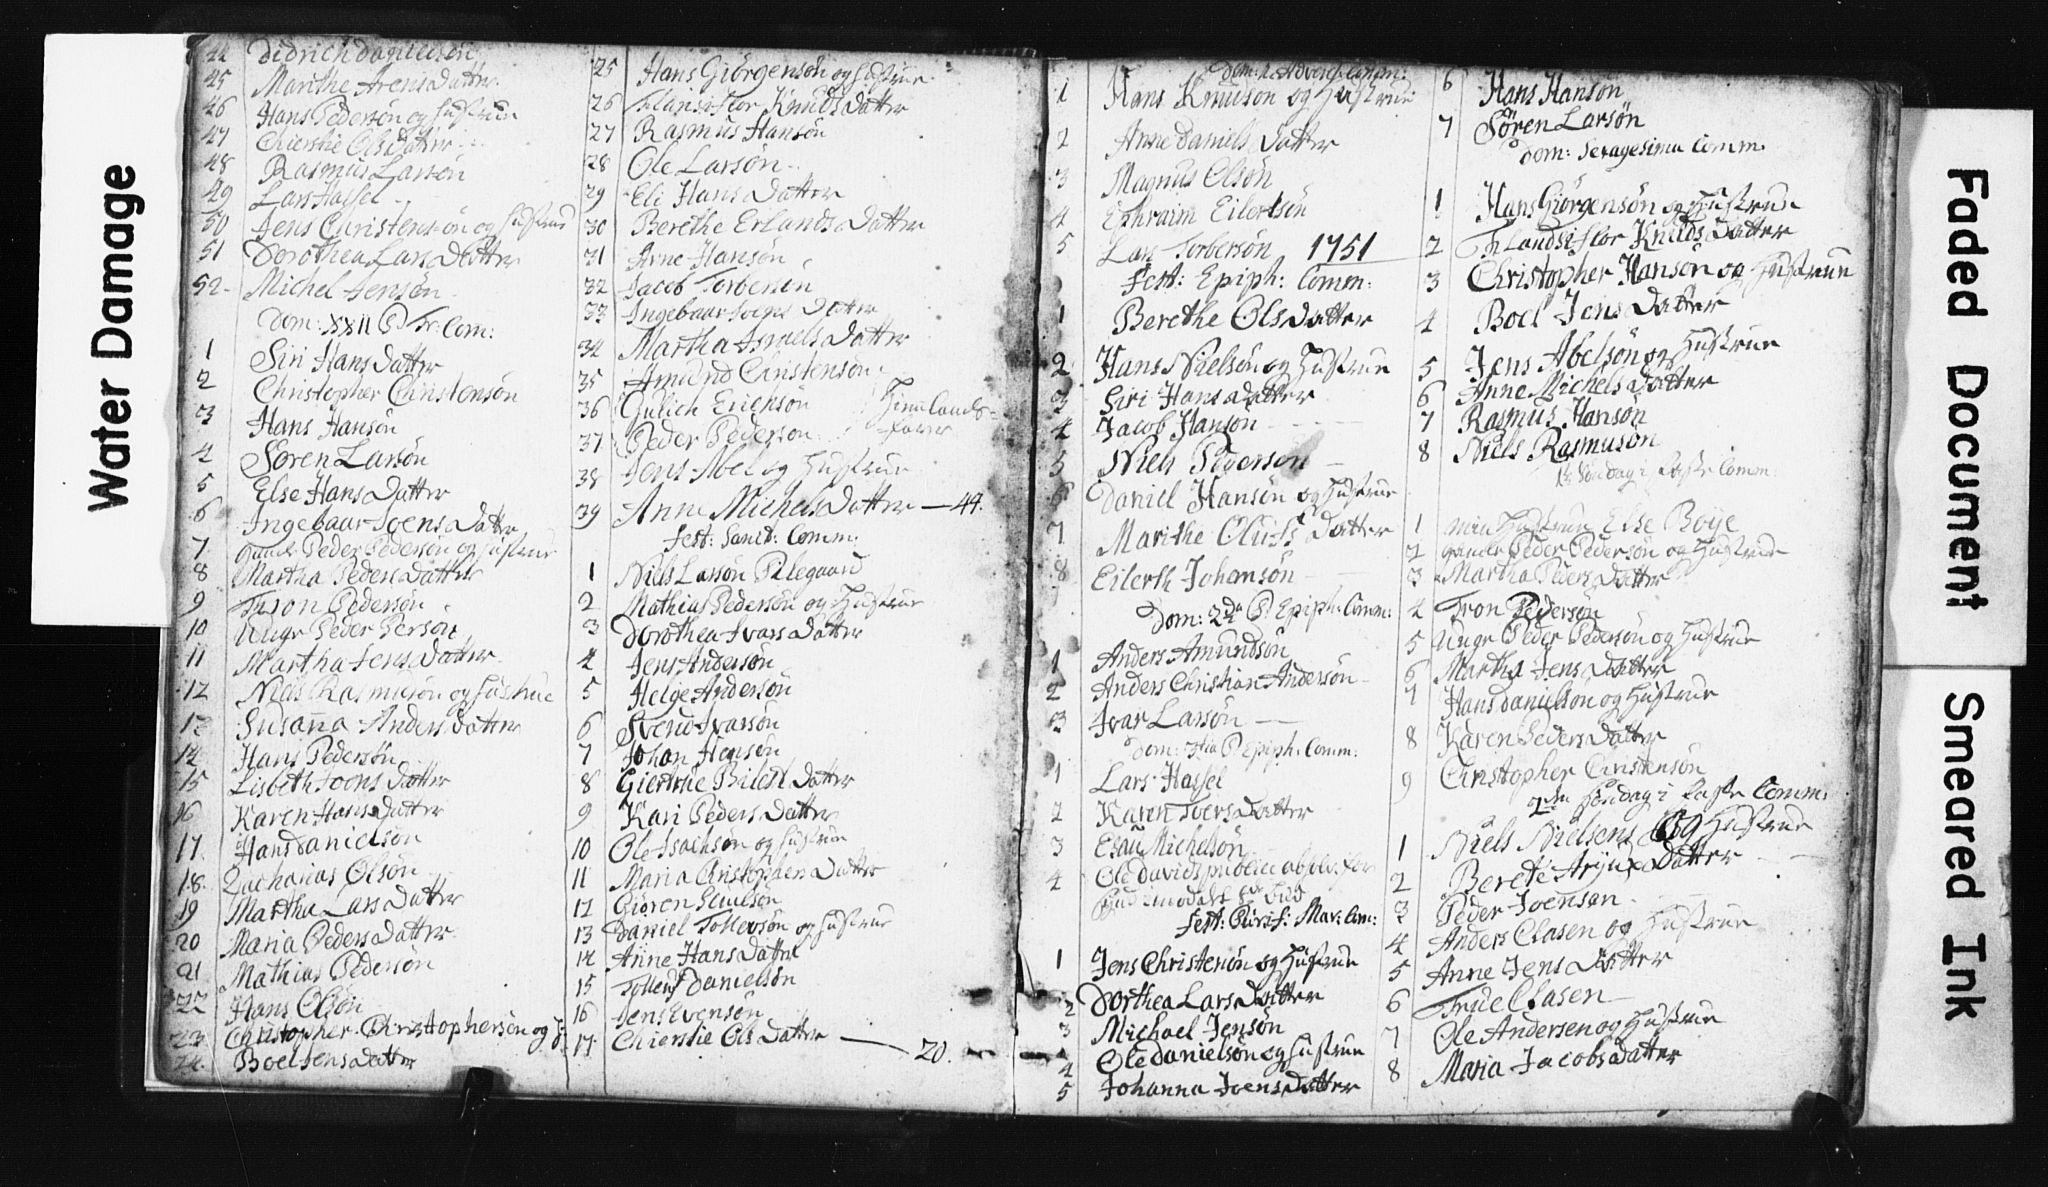 Water Damage
44 Didrich Danielsøn
45 Marithe Arensdatter
46 Hans Pedersøn og Hustrue
47 Chierstie Olsdatter
48 Rasmus Larsøn
49 Lars Hassel
50 Jens Christensøn og Hustrue
51 Dorothea Larsdatter
52. Michel Jensøn
Dom: XXII P. Tr: Com:
1 Siri Hansdatter
2 Christopher Christensøn
3 Hans Hansøn
4 Søren Larsøn
5 Else Hansdatter
6 Ingebaar Joensdatter
7. gamle Peder Pedersøn og Hustrue
8 Martha Pedersdatter
9 Tron Pedersøn
10 Unge Peder Persøn
11 Martha Jensdatter
12 Niels Rasmusøn og Hustrue
13 Susanna Andersdatter
14. Hans Pedersøn
15 Lisbeth Joensdatter
16 Karen Hansdatter
17. Hans Danielsøn
18. Zacharias Olsøn
19 Martha Larsdatter
20 Maria Pedersdatter
21 Mathias Pedersøn
22 Hans Olsøn
23 Christopher Christophersøn og H:
24. Boel Jensdatter
25 Hans Giørgensøn og Hustrue
26 Knudsdatter
27 Rasmus Hansøn
28 Ole Larsøn
29 Eli Hansdatter
30 Berethe Erlandsdatter
31 Arne Hansøn
32 Jacob Torbersøn
33 Ingebaar Joensdatter
34 Martha Ismelsdatter
35 Amund Christensøn
36 Gulich Erichsøn
37 Peder Pedersøn
38 Jens Abel og Hustrue
39 Anne Michelsdatter — 44.
Fest: Sanct: Comm:
1 Niels Larsøn Pilegaard
2 Mathias Pedersøn og Hustrue
3 Dorothea Ivarsdatter
4 Jens Andersøn
5 Helge Andersøn
6 Svend Ivarsøn
7 Johan Hansøn
8 Giertrue datter
9 Kari Pedersdatter
10 Ole Isachsøn og Hustrue
11 Maria Christophersdatter
12 Giøren
13 Daniel Tollevsøn og Hustrue
14 Anne Hansdatter
15 Tollev Danielsøn
16 Jens Evensøn
17 Chierstie Olsdatter — 20.
Dom: 1. Advent: Comm:
1 Hans Knutson og Hustrue
2 Anne Danielsdatter
3 Magnus Olsøn
4 Ephraim Eilertsøn
5 Lars Torbersøn 1751
Fest: Epiph: Comm:
1 Berethe Olsdatter
2 Hans Nielsøn og Hustrue
3 Siri Hansdatter
4 Jacob Hansøn
5 Niels Pedersøn
6 Daniel Hansøn og Hustrue
7 Marithe Olufsdatter
8 Eilerth Johansøn
Dom: 2da P. Epiph: Comm:
1 Anders Amundsøn
2 Anders Christian Andersøn
3 Ivar Larsøn
Dom: 3tia P. Epiph: Comm:
1 Lars Hassel
2 Karen Joersdatter
3 Esau Michelsøn
4 Ole Davids publice absolv: for
Fest: Purif: Mar: Com:
1 Jens Christensøn og Hustrue
2 Dorthea Larsdatter
3 Michael Jensøn
4 Ole Danielsøn og Hustrue
5 Johanna Joensdatter
6 Hans Hansøn
7 Søren Larsøn
Dom: Sexagesima Comm:
1 Hans Giørgensøn og Hustrue
2 Knudsdatter
3 Christopher Hanson og Hustrue
4 Boel Jensdatter
5 Jens Abelsøn og Hustrue
6 Anne Michelsdatter
7 Rasmus Hansøn
8 Niels Rasmusøn
1te Søndag i Faste Comm:
1 min Hustrue Else Boye
2 gamle Peder Pedersøn og Hustrue
3 Martha Pedersdatter
4 Tron Pedersøn
5 Unge Peder Pedersøn og Hustrue
6 Martha Jensdatter
7 Hans Danielsøn og Hustrue
8 Karen Pedersdatter
9 Christopher Christensøn
2den Søndag i Faste Comm:
1 Niels Nielsens og Hustrue
2 Berete datter
3 Peder Joensan
4 Anders Clasen og Hustrue
5 Anne Jensdatter
6 True Clasen
7 Ole Andersen og Hustrue
8 Maria Jacobsdatter
Faded Document
Smeared Ink